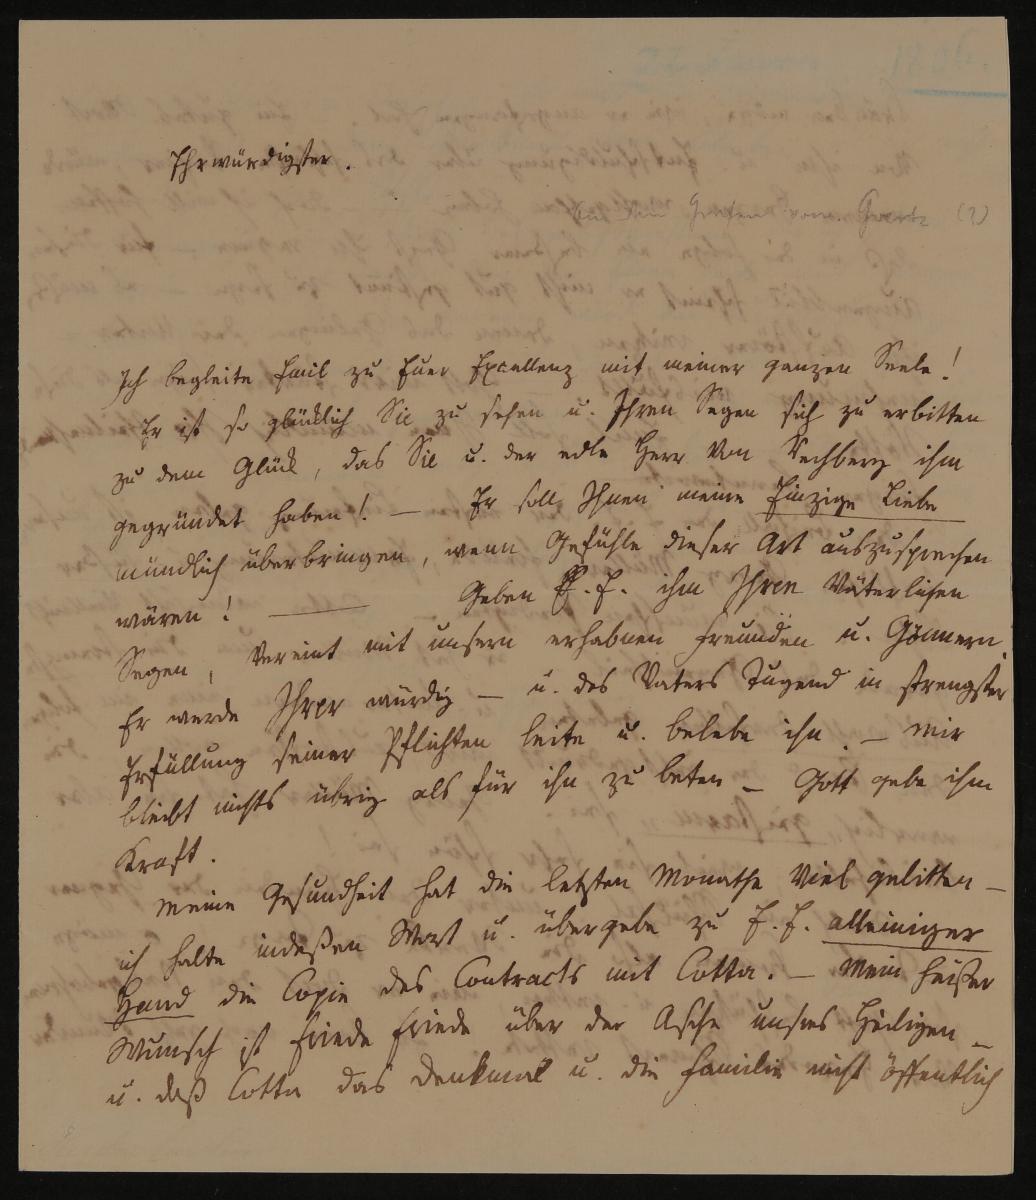 1806.
Ehrwürdigster.
An den Grafen von Goertz (?)
Ich begleite Emil zu Euer Excellenz mit meiner ganzen Seele!
Er ist so glücklich Sie zu sehen u. Ihren Segen sich zu erbitten
zu dem Glück, das Sie u. der edle Herr von Rechberg ihm
gegründet haben! — Er soll Ihnen meine Einzige Liebe
mündlich überbringen, wenn Gefühle dieser Art auszusprechen
wären! — Geben E. E. ihm Ihren Väterlichen
Segen, vereint mit unsern erhabnen Freunden u. Gönnern.
Er werde Ihrer würdig — u. des Vaters Tugend in strengster
Erfüllung seiner Pflichten leite u. belebe ihn. — Mir
bleibt nichts übrig als für ihn zu beten — Gott gebe ihm
Kraft.
Meine Gesundheit hat die letzten Monathe viel gelitten —
ich halte indeßen Wort u. übergebe zu E. E. alleiniger
Hand die Copie des Contracts mit Cotta. — Mein heißer
Wunsch ist Friede Friede über der Asche unsres Heiligen —
u. daß Cotta das Denkmal u. die Familie nicht öffentlich